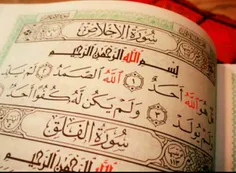 سُورَةُ الإِخْلَاصِ
بِسْمِ اللَّهِ الرَّحْمَٰنِ الرَّحِيمِ
هُوَ اللَّهُ أَحَدٌ ١ اللَّهُ الصَّمَدُ ٢ لَمْ يَلِدْ
يُولَدْ ٣ وَلَمْ يَكُن لَّهُ كُفُوًا أَحَدٌ
سُورَةُ الْفَلَقِ
اللَّهِ الرَّحْمَٰنِ الرَّحِيمِ